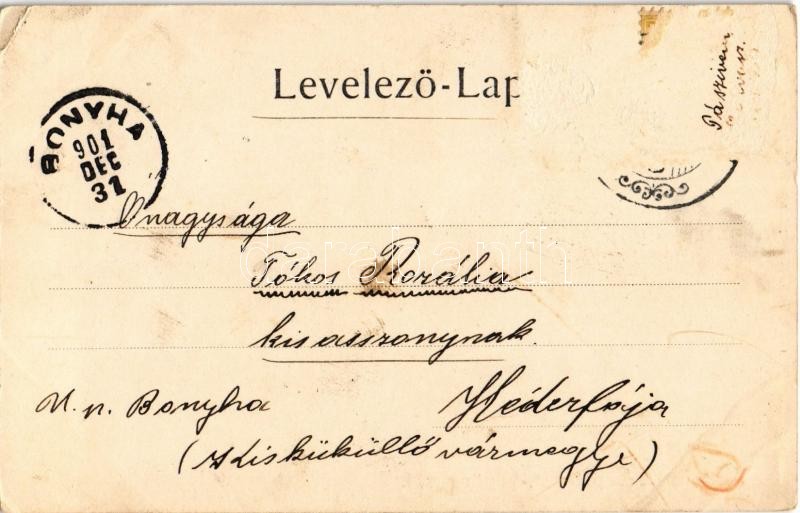 Levelező-Lap
BONYHA
901
DEC
31
Őnagysága
Tőkos Rozália
kisasszonynak
U. n. Bonyha Héderfája
(Kisküküllő vármegye)
darabanth